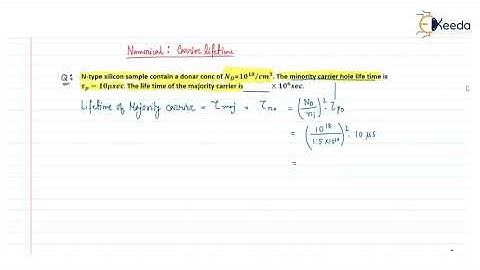 Ekeeda
Numerical : Carrier lifetime
Q: N-type silicon sample contain a donar conc of N_D=10^18/cm^3. The minority carrier hole life time is
τ_p = 10μsec. The life time of the majority carrier is ______ × 10^6 sec.
Lifetime of Majority carrier = τ_maj = τ_no = (N_D/n_i)^2 · τ_po
= (10^18/1.5×10^10)^2 · 10 μs
=